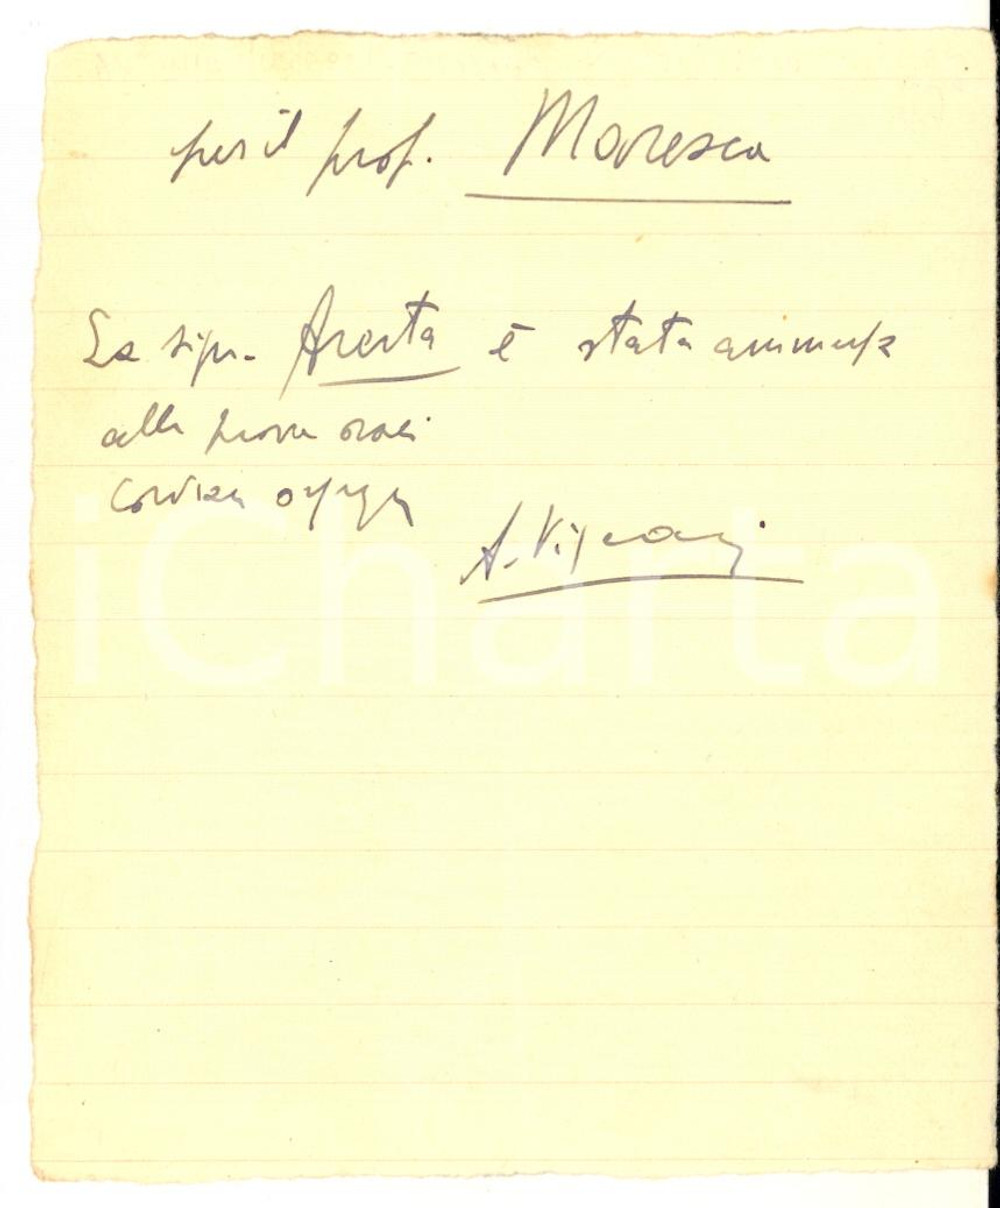 per il prof. Moresca
La sign. Aresta è stata ammessa
alle prove orali
Cordiali ossequi
A. Viscardi
iCharta